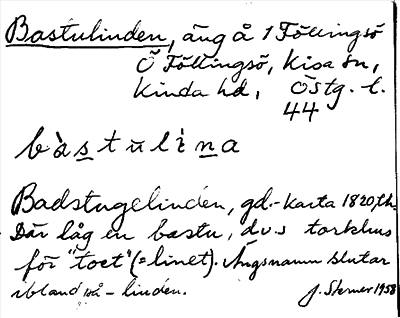 Bastulinden, äng å 1 Föllingsö
Ö Föllingsö, Kisa sn,
Kinda hd, Östg. l.
44
bàstulìna
Badstugelinden, gd.-karta 1820,th.
Där låg en bastu, dvs torkhus
för "toet" (=linet). Ängsnamn slutar
ibland på -linden. J. Sterner 1958